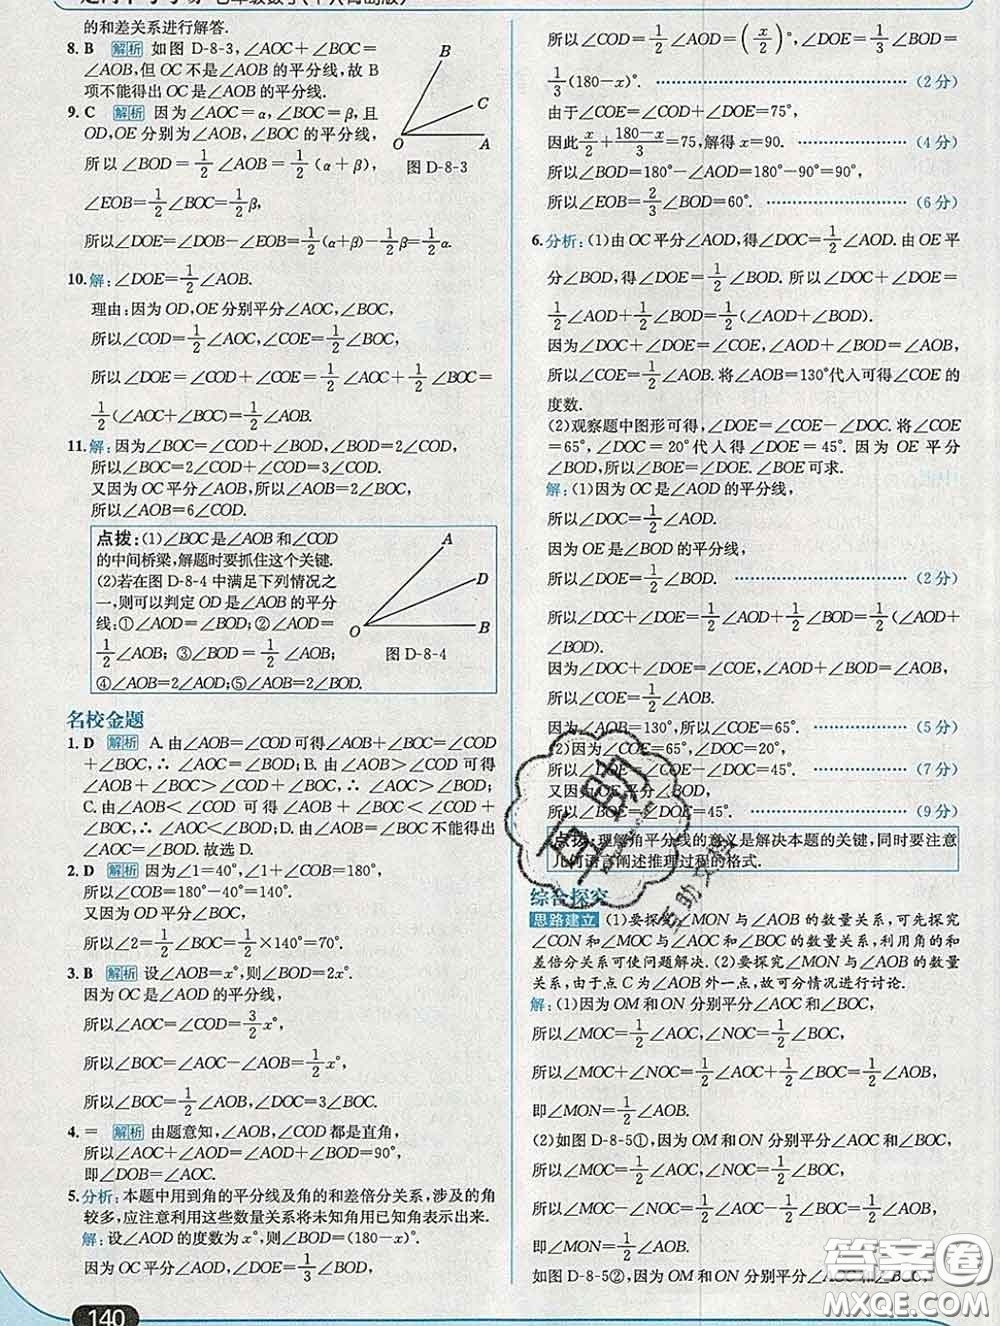 的和差关系进行解答.
8. B 解析 如图 D-8-3,∠AOC+∠BOC=
∠AOB,但 OC 不是∠AOB 的平分线,故 B
项不能得出 OC 是∠AOB 的平分线.
9. C 解析 因为∠AOC=α,∠BOC=β,且
OD,OE 分别为∠AOB,∠BOC 的平分线,
所以∠BOD=1/2∠AOB=1/2(α+β),
∠EOB=1/2∠BOC=1/2β,
所以∠DOE=∠DOB-∠EOB=1/2(α+β)-1/2β=1/2α.
B
C
O
A
图 D-8-3
10.解:∠DOE=1/2∠AOB.
理由:因为 OD,OE 分别平分∠AOC,∠BOC,
所以∠COD=1/2∠AOC,∠COE=1/2∠BOC,
所以∠DOE=∠COD+∠COE=1/2∠AOC+1/2∠BOC=
1/2(∠AOC+∠BOC)=1/2∠AOB.
11.解:因为∠BOC=∠COD+∠BOD,∠BOD=2∠COD,
所以∠BOC=2∠COD+∠COD=3∠COD.
又因为 OC 平分∠AOB,所以∠AOB=2∠BOC,
所以∠AOB=6∠COD.
点拨:(1)∠BOC 是∠AOB 和∠COD
的中间桥梁,解题时要抓住这个关键.
(2)若在图 D-8-4 中满足下列情况之
一,则可以判定 OD 是∠AOB 的平分
线:①∠AOD=∠BOD;②∠AOD=
1/2∠AOB;③∠BOD=1/2∠AOB;
④∠AOB=2∠AOD;⑤∠AOB=2∠BOD.
A
D
O
B
图 D-8-4
名校金题
1. D 解析 A.由∠AOB=∠COD 可得∠AOB+∠BOC=∠COD
+∠BOC,∴ ∠AOC=∠BOD;B.由∠AOB>∠COD 可得
∠AOB+∠BOC>∠COD+∠BOC,∴ ∠AOC>∠BOD;
C.由∠AOB<∠COD 可得∠AOB+∠BOC<∠COD+
∠BOC,∴ ∠AOC<∠BOD;D.由∠AOB=∠BOC 不能得出
∠AOC=∠BOD.故选 D.
2. D 解析 因为∠1=40°,∠1+∠COB=180°,
所以∠COB=180°-40°=140°.
又因为 OD 平分∠BOC,
所以∠2=1/2∠BOC=1/2×140°=70°.
3. B 解析 设∠AOB=x°,则∠BOD=2x°.
因为 OC 是∠AOD 的平分线,
所以∠AOC=∠COD=3/2x°,
所以∠BOC=∠AOC-∠AOB=1/2x°,
所以∠BOC=1/2∠AOB,∠DOC=3∠BOC.
4. = 解析 由题意知,∠AOB,∠COD 都是直角,
所以∠AOC+∠AOD=∠AOD+∠BOD=90°,
即∠DOB=∠AOC.
5.分析:本题中用到角的平分线及角的和差倍分关系,涉及的角
较多,应注意利用这些数量关系将未知角用已知角表示出来.
解:设∠AOD 的度数为 x°,则∠BOD=(180-x)°.
因为 OC 平分∠AOD,∠DOE=1/3∠BOD,
140
所以∠COD=1/2∠AOD=(x/2)°,∠DOE=1/3∠BOD=
1/3(180-x)°. (2 分)
由于∠COE=∠COD+∠DOE=75°,
因此x/2+(180-x)/3=75,解得 x=90. (4 分)
所以∠BOD=180°-∠AOD=180°-90°=90°,
所以∠EOB=2/3∠BOD=60°. (6 分)
6.分析:(1)由 OC 平分∠AOD,得∠DOC=1/2∠AOD.由 OE 平
分∠BOD,得∠DOE=1/2∠BOD.所以∠DOC+∠DOE=
1/2∠AOD+1/2∠BOD=1/2(∠AOD+∠BOD).
因为∠DOC+∠DOE=∠COE,∠AOD+∠BOD=∠AOB,
所以∠COE=1/2∠AOB.将∠AOB=130°代入可得∠COE 的
度数.
(2)观察题中图形可得,∠DOE=∠COE-∠DOC.将∠COE
=65°,∠DOC=20°代入得∠DOE=45°.因为 OE 平分
∠BOD,所以∠BOE=∠DOE.∠BOE 可求.
解:(1)因为 OC 是∠AOD 的平分线,
所以∠DOC=1/2∠AOD.
因为 OE 是∠BOD 的平分线,
所以∠DOE=1/2∠BOD. (2 分)
所以∠DOC+∠DOE=1/2∠AOD+1/2∠BOD=1/2(∠AOD+
∠BOD).
因为∠DOC+∠DOE=∠COE,∠AOD+∠BOD=∠AOB,
所以∠COE=1/2∠AOB.
因为∠AOB=130°,所以∠COE=65°. (5 分)
(2)因为∠COE=65°,∠DOC=20°,
所以∠DOE=∠COE-∠DOC=45°. (7 分)
又因为 OE 平分∠BOD,
所以∠BOE=∠DOE=45°. (9 分)
点拨:理解角平分线的意义是解决本题的关键,同时要注意
几何语言阐述推理过程的格式.
综合探究
思路建立 (1)要探究∠MON 与∠AOB 的数量关系,可先探究
∠CON 和∠MOC 与∠AOC 和∠BOC 的数量关系,利用角的和
差倍分关系可使问题解决.(2)要探究∠MON 与∠AOB 的数量
关系,由于点 C 为∠AOB 外一点,故可分情况进行讨论.
解:(1)因为 OM 和 ON 分别平分∠AOC 和∠BOC,
所以∠MOC=1/2∠AOC,∠NOC=1/2∠BOC,
所以∠MOC+∠NOC=1/2∠AOC+1/2∠BOC=1/2∠AOB,
即∠MON=1/2∠AOB.
(2)如图 D-8-5①,因为 OM 和 ON 分别平分∠AOC 和∠BOC,
所以∠MOC=1/2∠AOC,∠NOC=1/2∠BOC,
所以∠MOC-∠NOC=1/2∠AOC-1/2∠BOC=1/2∠AOB,
即∠MON=1/2∠AOB.
如图 D-8-5②,因为 OM 和 ON 分别平分∠AOC 和∠BOC,
答案圈
MXQE.COM